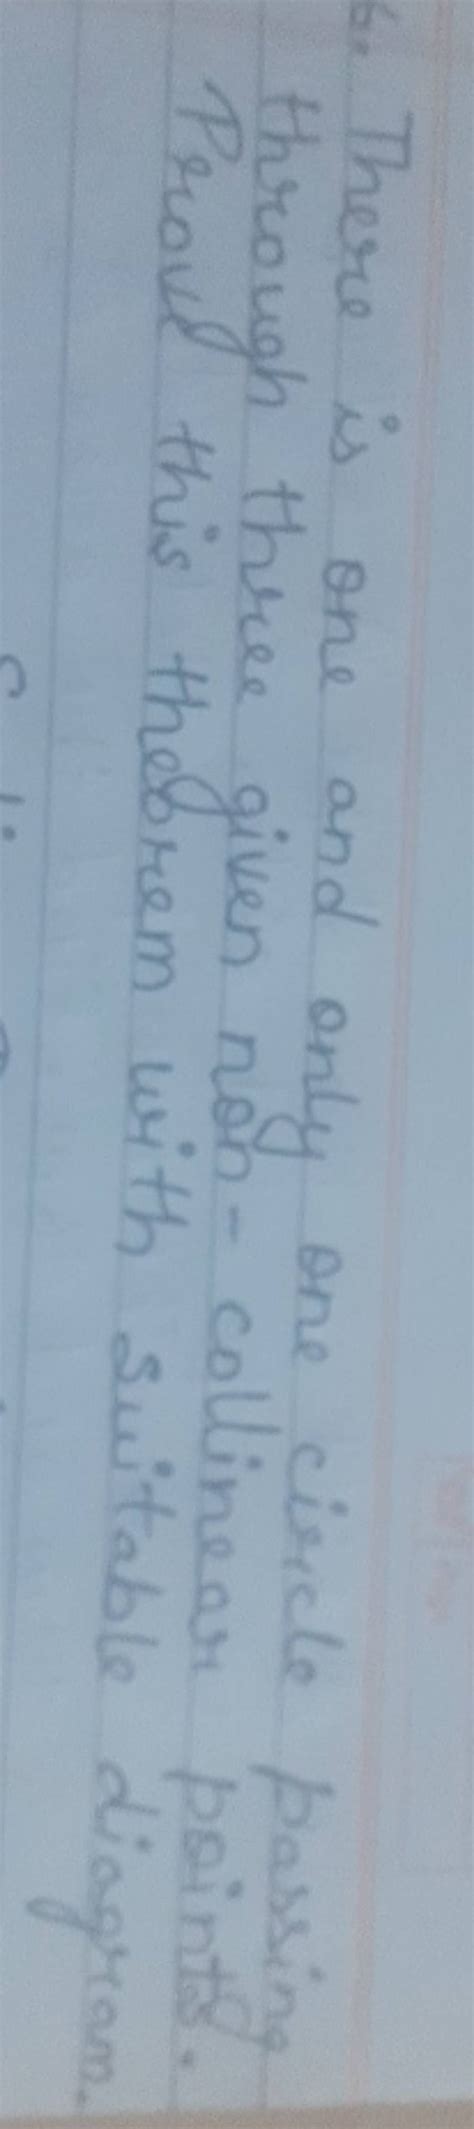 6. There is one and only one circle passing
through three given non-collinear points.
Prove this theorem with suitable diagram.